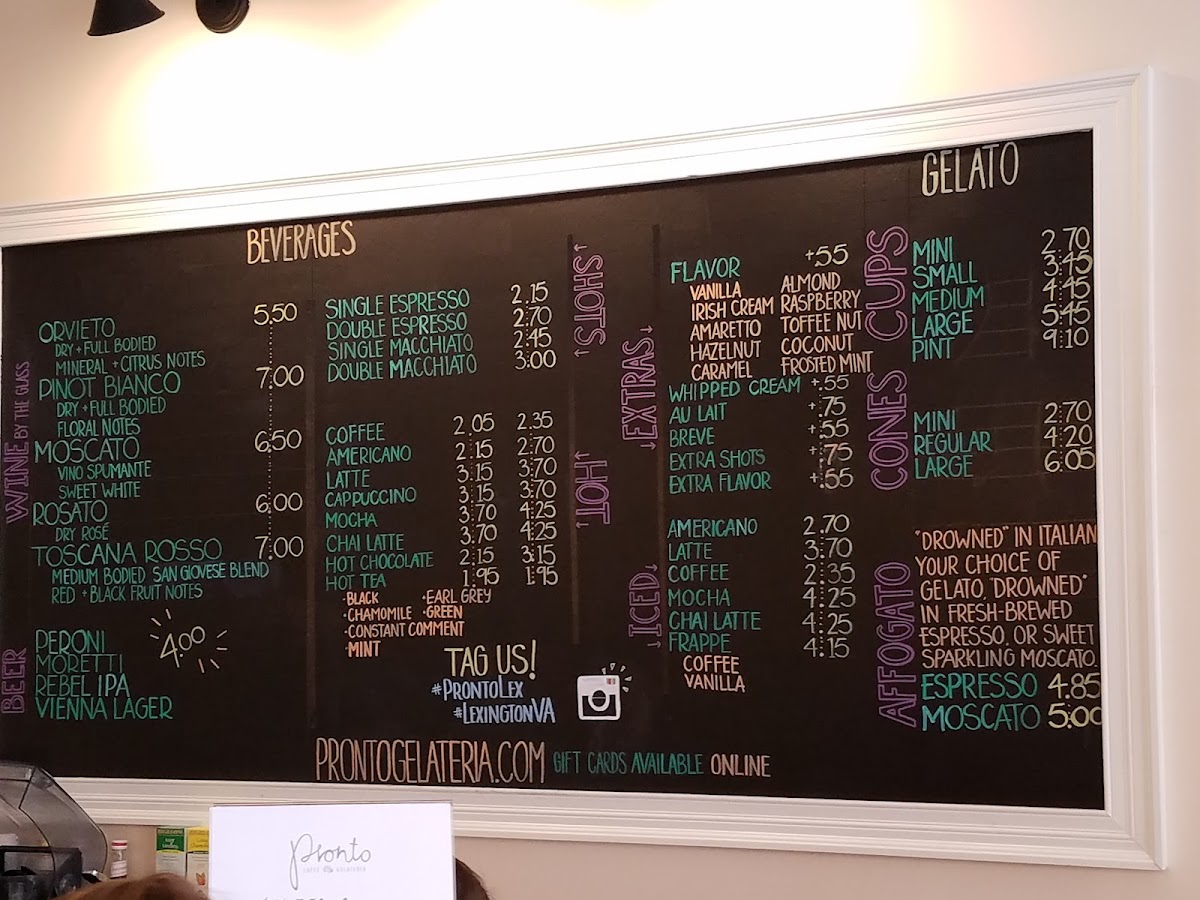 BEVERAGES
WINE BY THE GLASS
ORVIETO 5.50
DRY + FULL BODIED
MINERAL + CITRUS NOTES
PINOT BIANCO 7.00
DRY + FULL BODIED
FLORAL NOTES
MOSCATO 6.50
VINO SPUMANTE
SWEET WHITE
ROSATO 6.00
DRY ROSÉ
TOSCANA ROSSO 7.00
MEDIUM BODIED SAN GIOVESE BLEND
RED + BLACK FRUIT NOTES
BEER
PERONI 4.00
MORETTI
REBEL IPA
VIENNA LAGER
SHOTS
SINGLE ESPRESSO 2.15
DOUBLE ESPRESSO 2.70
SINGLE MACCHIATO 2.45
DOUBLE MACCHIATO 3.00
HOT
COFFEE 2.05 2.35
AMERICANO 2.15 2.70
LATTE 3.15 3.70
CAPPUCCINO 3.15 3.70
MOCHA 3.70 4.25
CHAI LATTE 3.70 4.25
HOT CHOCOLATE 2.15 3.15
HOT TEA 1.95 1.95
•BLACK •EARL GREY
•CHAMOMILE •GREEN
•CONSTANT COMMENT
•MINT
TAG US!
#PRONTOLEX
#LEXINGTONVA
EXTRAS
FLAVOR +.55
VANILLA ALMOND
IRISH CREAM RASPBERRY
AMARETTO TOFFEE NUT
HAZELNUT COCONUT
CARAMEL FROSTED MINT
WHIPPED CREAM +.55
AU LAIT +.75
BREVE +.55
EXTRA SHOTS +.75
EXTRA FLAVOR +.55
ICED
AMERICANO 2.70
LATTE 3.70
COFFEE 2.35
MOCHA 4.25
CHAI LATTE 4.25
FRAPPE 4.15
COFFEE
VANILLA
GELATO
CUPS
MINI 2.70
SMALL 3.45
MEDIUM 4.45
LARGE 5.45
PINT 9.10
CONES
MINI 2.70
REGULAR 4.20
LARGE 6.05
AFFOGATO
"DROWNED" IN ITALIAN
YOUR CHOICE OF
GELATO, "DROWNED"
IN FRESH-BREWED
ESPRESSO, OR SWEET
SPARKLING MOSCATO.
ESPRESSO 4.85
MOSCATO 5:00
PRONTOGELATERIA.COM GIFT CARDS AVAILABLE ONLINE
Pronto